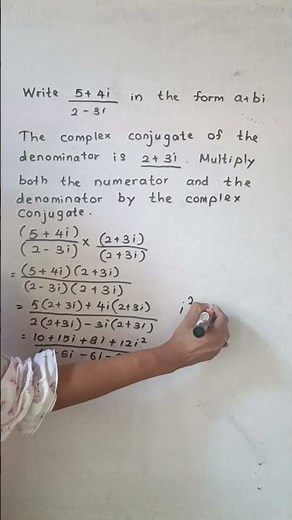 Write (5+4i)/(2-3i) in the form a+bi
The complex conjugate of the
denominator is 2+3i. Multiply
both the numerator and the
denominator by the complex
conjugate.
(5+4i)/(2-3i) × (2+3i)/(2+3i)
= (5+4i)(2+3i)/(2-3i)(2+3i)
= 5(2+3i)+4i(2+3i)/2(2+3i)-3i(2+3i)
i²
= 10+15i+8i+12i²/6i-6i-